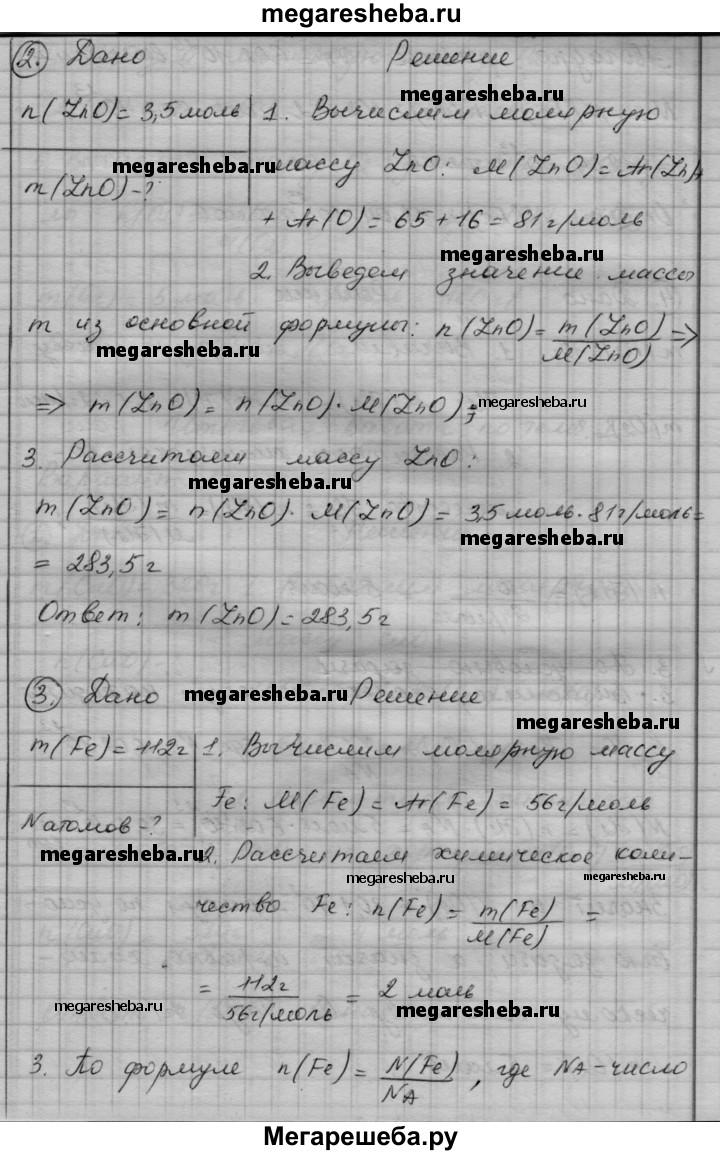 megaresheba.ru
2. Дано Решение
megaresheba.ru
n(ZnO)= 3,5 моль 1. Вычислим молярную
megaresheba.ru
m(ZnO)-? массу ZnO: M(ZnO)=Ar(Zn)+
+ Ar(O) = 65 + 16 = 81 г/моль
megaresheba.ru
2. Выведем значение массы
m из основной формулы: n(ZnO)= m(ZnO)/M(ZnO) =>
megaresheba.ru
=> m(ZnO) = n(ZnO)·M(ZnO);
megaresheba.ru
3. Рассчитаем массу ZnO:
megaresheba.ru
m(ZnO) = n(ZnO)· M(ZnO) = 3,5 моль·81г/моль=
megaresheba.ru
= 283,5 г
Ответ: m(ZnO)= 283,5г
3. Дано megaresheba.ru Решение
megaresheba.ru
m(Fe)=112г 1. Вычислим молярную массу
Fe: M(Fe) = Ar(Fe) = 56г/моль
N атомов-?
megaresheba.ru 2. Рассчитаем химическое коли-
megaresheba.ru megaresheba.ru
чество Fe: n(Fe) = m(Fe)/M(Fe) =
= 112г/56г/моль = 2 моль
megaresheba.ru megaresheba.ru
3. По формуле n(Fe) = N(Fe)/NA, где NA-число
Мегарешеба.ру